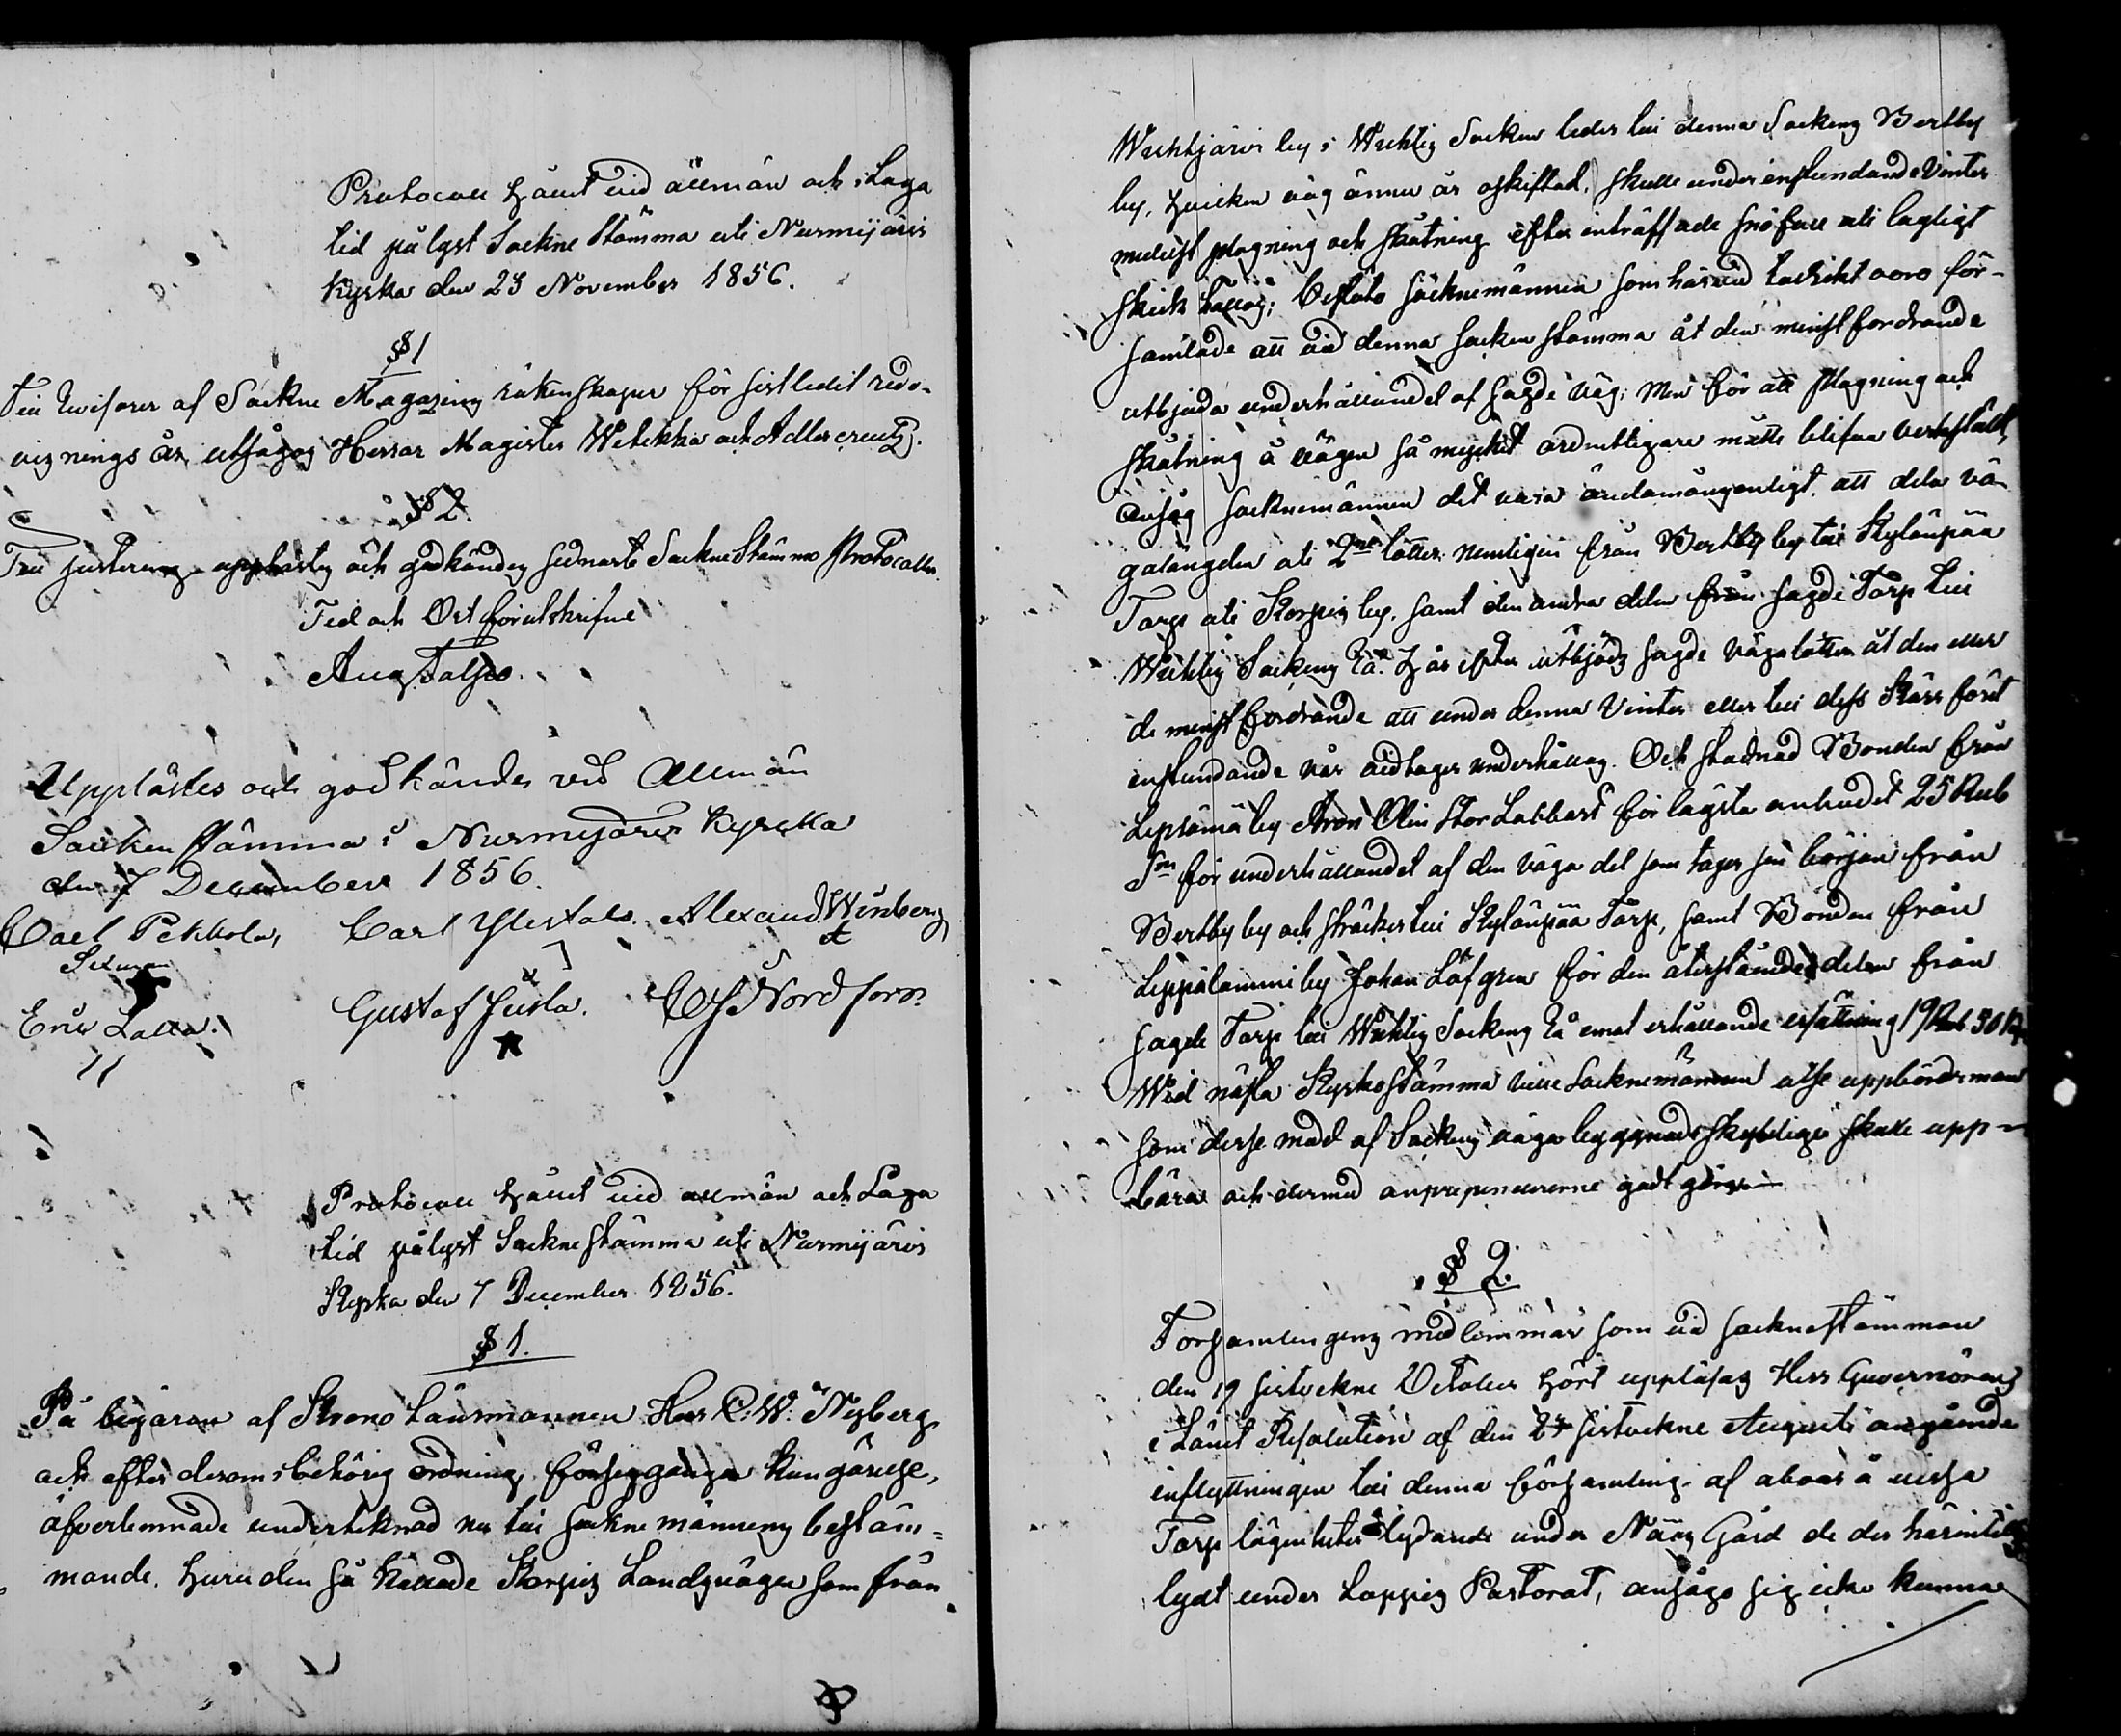 Protocoll hållit vid allmän och i Laga
tid pålyst Sockne Stämma uti Nurmijärvi
Kyrka den 23 November 1856.
§ 1
Till Revisorer af Sockne Magazins räkenskaper för sistledit redo-
visnings år, utsågos Herrar Magister Wetikko och Adlercreutz.
§ 2.
Till justering upplästes och godkändes sednaste Sockne Stämmo Protocoller.
Tid och Ort förutskrifne
Aug Fattso
Upplästes och godkändes vid Allmän
Socken stämma i Nurmijärvi Kyrcka
den 7 December 1856.
Carl Pekkola, Carl Ylestalo. Alexand. Winberg
Sexman
Eric Lalla. Gustaf Jusla. Nordfors
Protocoll hållit vid allmän och Laga
tid pålyst Sockne stämma uti Nurmijärvi
Kyrka den 7 December 1856.
§ 1.
På begäran af Krono Länsmannen Herr C. W. Nyberg,
och efter derom i behörig ordning, försiggången kungörelse,
öfverlemnade undertecknad nu till sockne männens bestäm-
mande, huru den så kallade Korpis Landsvägen som från
Wichtjärvi by i Wichtis Socken leder till denna Sockens Bertby
by, hvilken väg ännu är oskiftad, skulle under instundande Vinter
medelst plogning och skåtning efter inträffade snöfall uti lagligt
skick hållas; Beslöto socknemännen som härvid talrikt voro för-
samlade att vid denna socken stämma åt den minst fordrande
utbjuda underhållandet af sagde väg; Men för att plogning och
skåtning å vägen så mycket ordentligare måtte blifva verkstäld,
ansåg socknemännen det vara ändamångenligt, att dela vä-
galängden uti 2ne lotter nemligen från Bertby by till Kyläupää
Torp uti Korpis by, samt den andra delen från sagde Torp till
Wichtis Sockens Rå. Här efter utbjöds sagde vägalotter åt den eller
de minst fordrande att under denna Vinter eller till dess Kärr föret
instundande vår vidtager underhållas. Och stadnad Bonden från
Lepsämä by Aron Olin Stor Labbart för lägsta anbudet 25 Rub
Smt för underhållandet af den väga del som tager sin början från
Bertby by och sträcker till Kyläupää Torp, samt Bonden från
Leppälammi by Johan Löfgren för den återstående delen från
sagde Torp till Wichtis Sockens Rå emot erhållande ersättning 19 Rub 50 Kp
Wid nästa Kyrkostämma ville Socknemännen utse uppbördsman
som desse medel af Sockens väga byggnads skyldige skulle upp-
bära och dermed entreprenörerne godt göra.
§ 2.
Församlingens medlemmar som vid socknestämman
den 19 sistvekne October hört uppläsas Herr Guvernörens
i Länet Resolution af den 27 sistvekne Augusti angående
inflyttningen till denna församling af aboar å vissa
Torp lägenheter lydande under Nääs Gård de der härintills
lydt under Loppis Pastorat, ansågo sig icke kunna